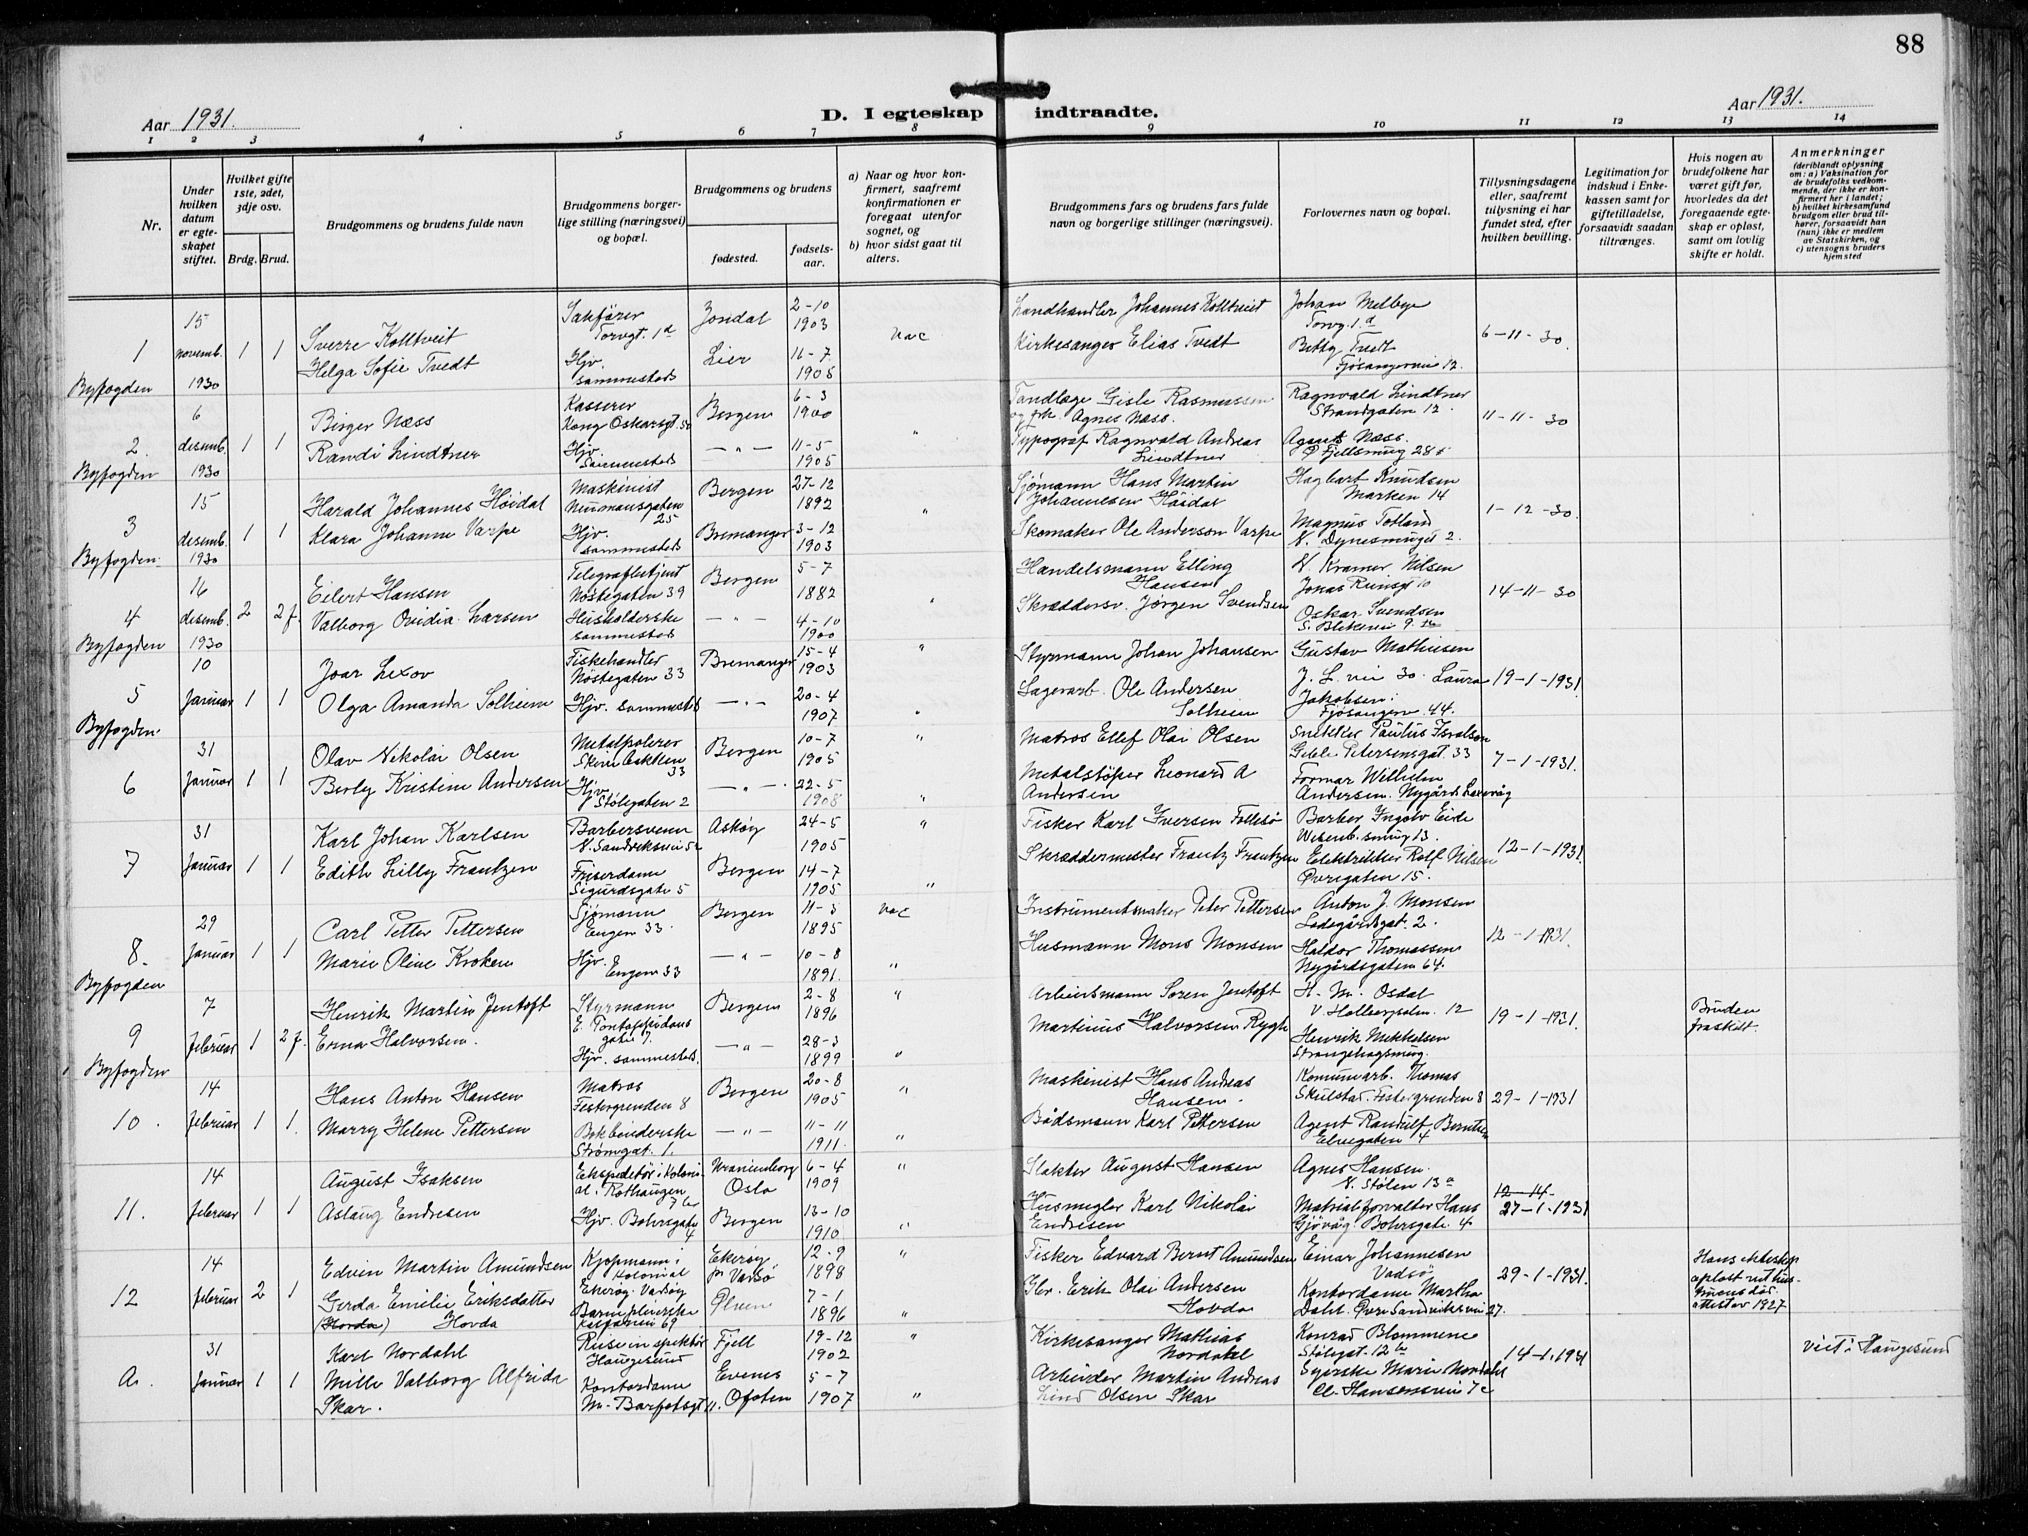 88
Aar 1931.
D. I egteskap indtraadte.
Aar 1931.
1 2 3 4 5 6 7 8 9 10 11 12 13 14
Nr.
Under hvilken datum er egteskapet stiftet.
Hvilket gifte 1ste, 2det, 3dje osv.
Brdg. Brud.
Brudgommens og brudens fulde navn
Brudgommens borgerlige stilling (næringsvei) og bopæl.
Brudgommens og brudens
fødested.
fødselsaar.
a) Naar og hvor konfirmert, saafremt konfirmationen er foregaat utenfor sognet, og
b) hvor sidst gaat til alters.
Brudgommens fars og brudens fars fulde navn og borgerlige stillinger (næringsvei).
Forlovernes navn og bopæl.
Tillysningsdagene eller, saafremt tillysning ei har fundet sted, efter hvilken bevilling.
Legitimation for indskud i Enkekassen samt for giftetilladelse, forsaavidt saadan tiltrænges.
Hvis nogen av brudefolkene har været gift før, hvorledes da det foregaaende egteskap er opløst, samt om lovlig skifte er holdt.
Anmerkninger (deriblandt oplysning om: a) Vaksination for de brudefolks vedkommende, der ikke er konfirmert her i landet; b) hvilket kirkesamfund brudgom eller brud tilhører, forsaavidt han (hun) ikke er medlem av Statskirken, og c) utensogns bruders hjemsted
1 Byfogden 15 novemb. 1930 1 1
Sverre Kolltveit Sakfører Torvgt. 1a Jondal 2-10 1903 vac Landhandler Johannes Kolltveit Johan Melbye Torvg. 1.a 6-11-30.
Helga Sofie Tvedt Hjv. sammesteds Lier 16-7 1905 Kirkesanger Elias Tvedt Betty Tvedt Fjøsangerveien 12.
2. Byfogden 6 desemb. 1930 1 1
Birger Næss Kasserer Kong Oskarsgt. Bergen 6-3 1900 " Tandlæge Gisle Rasmussen og frk. Agnes Næss. Ragnvald Lindtner Strandgaten 12. 11-11-30
Randi Lindtner Hjv. Sammesteds -"- 11-5 1905 Typograf Ragnvald Andreas Lindtner Agnes Næss. Ø Fjellsmug 28
3 Byfogden 15 desemb. 1930 1 1
Harald Johannes Høidal Maskinist Neumansgaten 25 Bergen 27-12 1892 " Sjømann Hans Martin Johannesen Høidal Hagbart Knudsen Marken 14 1-12-30.
Klara Johanne Varpe Hjv. sammesteds Bremanger 3-12 1903 Skomaker Ole Anderson Varpe Magnus Totland N. Dynesmuget 2.
4 Byfogden 16 desemb. 1930 2 2 f.
Eilert Hansen Telegrafbetjent Nøstegaten 39 Bergen 5-7 1882 " Handelsmann Elling Hansen H. Kramer Nilsen Jonas Reinsgt 10 14-11-30
Valborg Ovidia Larsen Husholderske sammesteds -"- 4-10 1900 " Skræddersv. Jørgen Svendsen Oskar Svendsen S. Blekevei 9.
5 Byfogden 10 Januar 1 1
Joar Lexov Fiskehandler Nøstegaten 33 Bremanger 15-4 1903 Styrmann Johan Johansen Gustav Mathiesen J. L. vei 30. Laura 19-1-1931.
Olga Amanda Solheim Hjv. sammesteds -"- 20-4 1907 " Lagerarb. Ole Andersen Solheim Jakobsen Fjøsangerv. 44.
6 31 Januar 1 1
Olav Nikolai Olsen Metalpolerer 33 Bergen 10-7 1905 " Matros Ellef Olai Olsen Snekker Paulus Isralson Geble Petersensgat. 33 7-1-1931.
Berly Kristine Andersen Hjv. Stølegaten 2 -"- 22-5 1908 " Metalstøper Leonard A Andersen Formar Wilhelm Andersen. Nygård Laxevåg
7 31 Januar 1 1
Karl Johan Karlsen Barbersvenn N. Sandviksvei Askøy 24-5 1905 " Fisker Karl Iversen Follesø Barber Ingolv Eide 13. 12-1-1931.
Edith Lilly Frantzen Friserdame Sigurdsgate 5 Bergen 14-7 1905 " Skræddermester Frantz Frantzen Elektrikker Rolf Nilsen Øvregaten 15.
8. Byfogden 29 Januar 1 1
Carl Petter Pettersen Sjømann Engen 33. Bergen 11-3 1895 vac Instrumentmaker Peter Pettersen Anton J. Monsen Ladegårdsgat. 2. 12-1-1931.
Marie Oline Kroken Hjv. Engen 33 -"- 10-8 1891. " Husmann Mons Monsen Haldor Thomassen Nygårdsgaten 64.
9 Byfogden 7 februar 1 2 f.
Henrik Martin Jentoft Styrmann E. Pontoppidans gate 7. Bergen 2-8 1896 " Arbeidsmann Soren Jentoft H. M. Osdal V Holbergsalm. 12 19-1-1931. Bruden fraskilt.
Erna Halvorsen. Hjv. sammesteds. -"- 28-3 1899 " Martinius Halvorsen Rygh Henrik Mikkelsen Strangehagsmug.
10. 14 februar 1 1.
Hans Anton Hansen Matros Festergrenden 8 Bergen 20-8 1905 " Maskinist Hans Andreas Hansen. Komunearb. Thomas Skulstad. Festergrenden 8 29-1-1931
Marry Helene Pettersen Bokbinderske Strømgat. 1. -"- 11-11 1911. " Bådsmann Karl Pettersen Agent Randulf Berntsen Elvegaten 4
11. 14 februar 1 1
August Isaksen Ekspeditør i Kolonial. Rothaugen Uranienborg Oslo 6-4 1909 " Slakter August Hansen Agnes Hansen. N. Stølen 13a 12-14.
Aslaug Endresen Hjv. Bohrsgate 4 Bergen 13-10 1910 " Husmegler Karl Nikolai Endresen Matrialforvalter Hans Gjøvåg Bohrsgate. 4 27-1-1931
12 14 februar 2 1
Edvin Martin Amundsen Kjøpmann i kolonial Ekerøy, Vadsø Ekerøy pr Vadsø 12-9 1898 " Fisker Edvard Bernt Amundsen Einar Johannesen Vadsø 29-1-1931. Hans ekteskap opløst ved hustruens død. attest av 1927
Gerda Emilie Eriksdatter (Horda) Hovda Barnepleierske 69 Ølven 7-1 1896 " Gbr. Erik Olai Andersen Hovda Kontordame Martha Dahl. Øvre Sandviksvei 27.
A. 31 Januar 1 1
Karl Nordahl Reiseinspektør Haugesund Fjell 19-12 1902 " Kirkesanger Mathias Nordahl Konrad Blommene Stølegat. 12 b 14-1-1931 viet i Haugesund
Mille Valborg Alfride Skar. Kontordame M. Barfotsgt 11. Evenes Ofoten 5-7 1907 " Arbeider Martin Andreas Lind Olsen Skar Syerske Marie Nordahl Cl. Hansensvei 7c